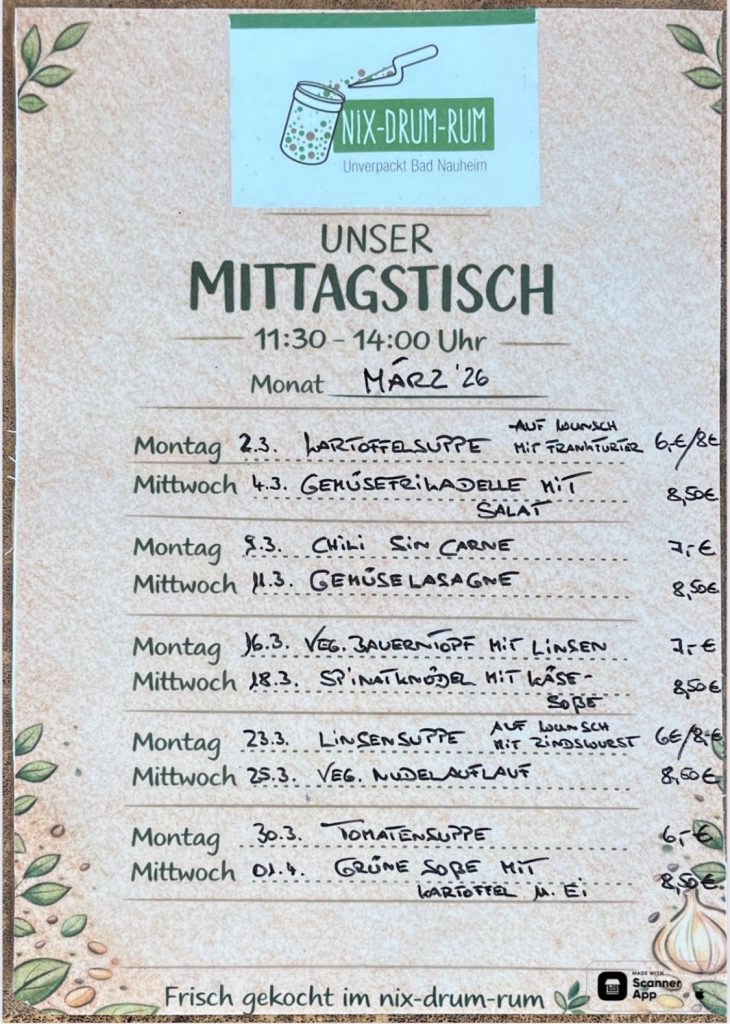 NIX-DRUM-RUM
Unverpackt Bad Nauheim
UNSER
MITTAGSTISCH
11:30 - 14:00 Uhr
Monat MÄRZ '26
Montag 2.3. KARTOFFELSUPPE - AUF WUNSCH MIT FRANKFURTER 6,-€/8€
Mittwoch 4.3. GEMÜSEFRIKADELLE MIT
SALAT 8,50€
Montag 9.3. CHILI SIN CARNE 7,-€
Mittwoch 11.3. GEMÜSELASAGNE 8,50€
Montag 16.3. VEG. BAUERNTOPF MIT LINSEN 7,-€
Mittwoch 18.3. SPINATKNÖDEL MIT KÄSE-
SOßE 8,50€
Montag 23.3. LINSENSUPPE AUF WUNSCH MIT RINDSWURST 6€/8,-€
Mittwoch 25.3. VEG. NUDELAUFLAUF 8,50€
Montag 30.3. TOMATENSUPPE 6,-€
Mittwoch 01.4. GRÜNE SOßE MIT
KARTOFFEL U. EI 8,50€
Frisch gekocht im nix-drum-rum
MADE WITH
Scanner
App